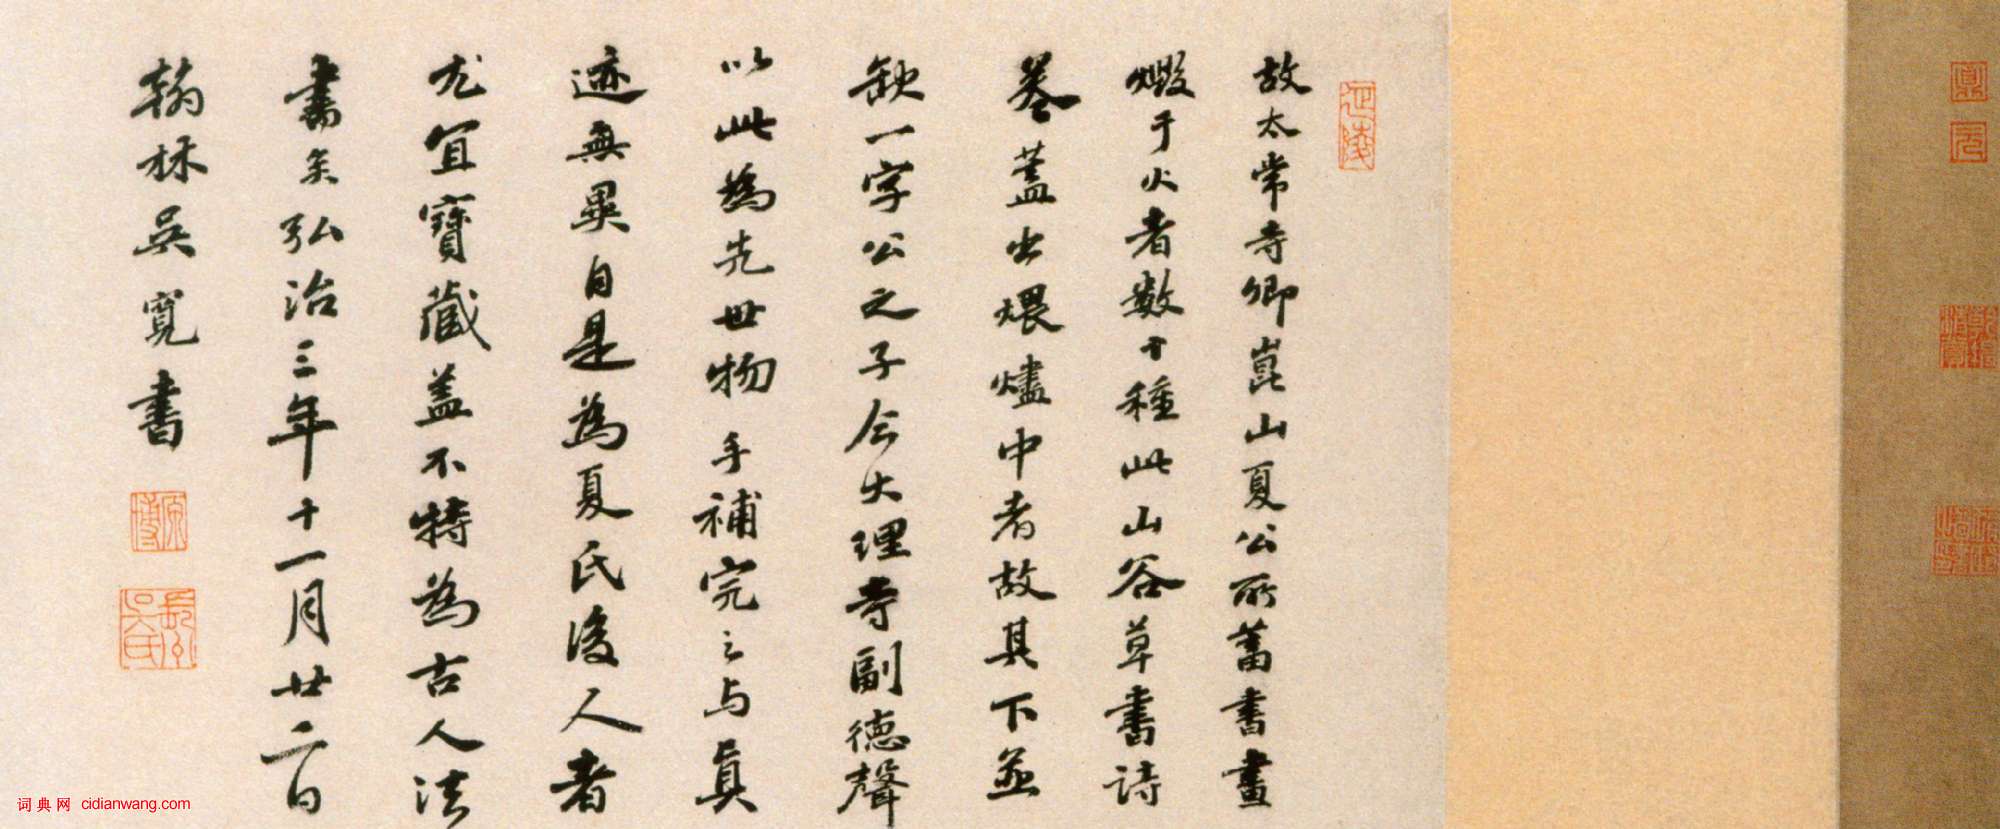 故太常寺卿崑山夏公所蓄書畫
燬于火者數十種此山谷草書詩
卷蓋出煨燼中者故其下並
缺一字公之子今大理寺副德聲
以此為先世物手補完之与真
迹無異自是為夏氏後人者
尤宜寶藏盖不特為古人法
書矣弘治三年十一月廿二日
翰林吳寬書
原博
延陵
词典网 cidianwang.com